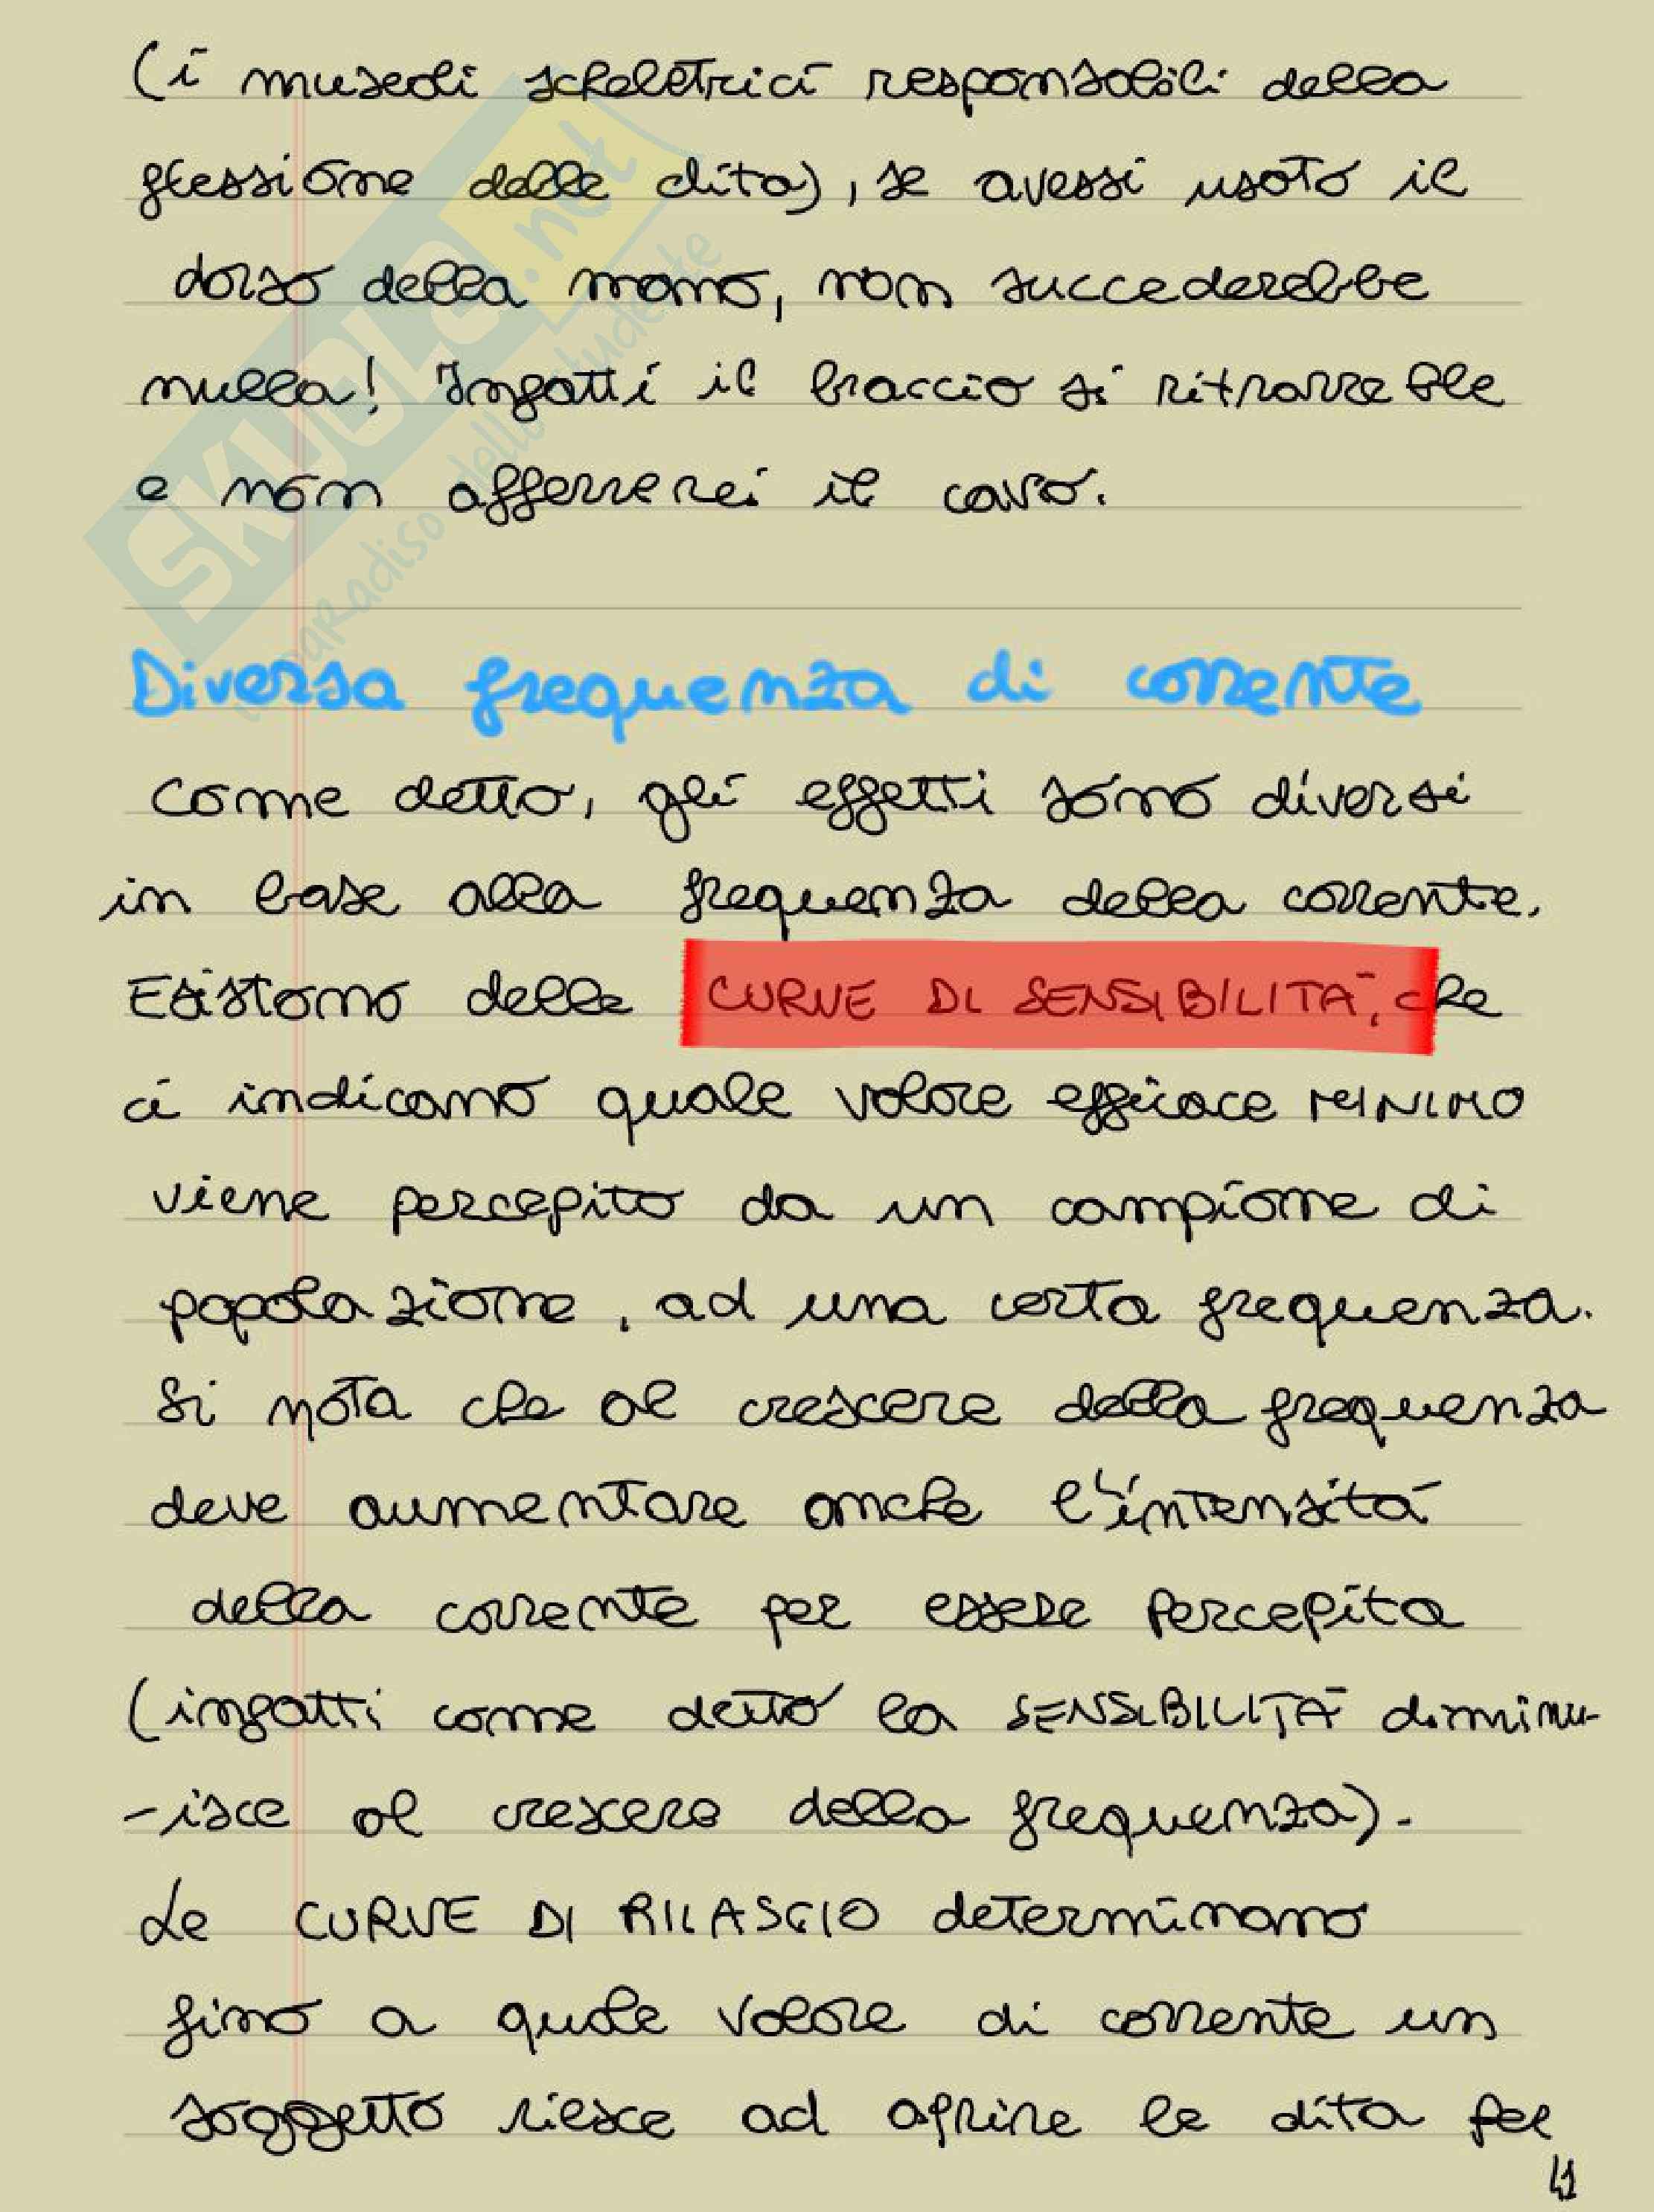 (i muscoli scheletrici responsabili della
flessione delle dita), se avessi usato il
dorso della mano, non succederebbe
nulla! Infatti il braccio si ritrarrebbe
e non afferrerei il cavo.
SKUOLA.net
il paradiso dello studente
Diversa frequenza di corrente
Come detto, gli effetti sono diversi
in base alla frequenza della corrente.
Esistono delle CURVE DI SENSIBILITÀ, che
ci indicano quale valore efficace MINIMO
viene percepito da un campione di
popolazione, ad una certa frequenza.
Si nota che al crescere della frequenza
deve aumentare anche l'intensità
della corrente per essere percepita
(infatti come detto la SENSIBILITÀ diminu-
-isce al crescere della frequenza).
Le CURVE DI RILASCIO determinano
fino a quale valore di corrente un
soggetto riesce ad aprire le dita per
41